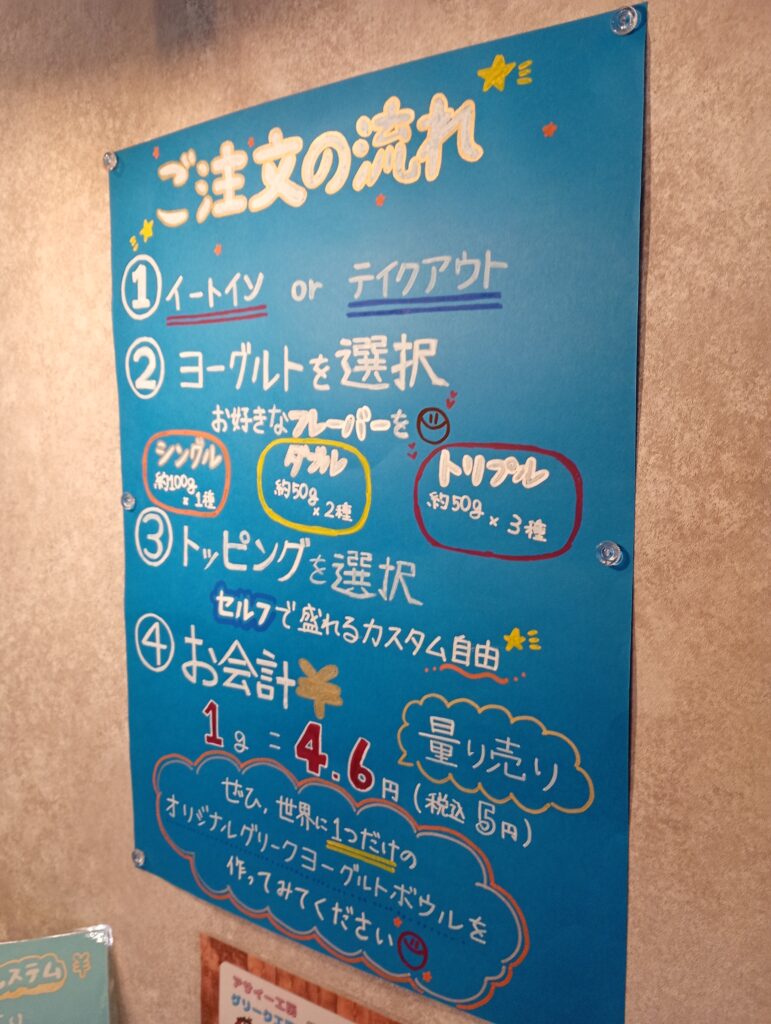 ご注文の流れ
① イートイン or テイクアウト
② ヨーグルトを選択
お好きなフレーバーを
シングル
約100g
×1種
ダブル
約50g
×2種
トリプル
約50g
×3種
③ トッピングを選択
セルフで盛れるカスタム自由
④ お会計¥
1g=4.6円(税込5円)
量り売り
ぜひ,世界に1つだけの
オリジナルグリークヨーグルトボウルを
作ってみてください
ステム ¥
アサイー工房
グリーク工房